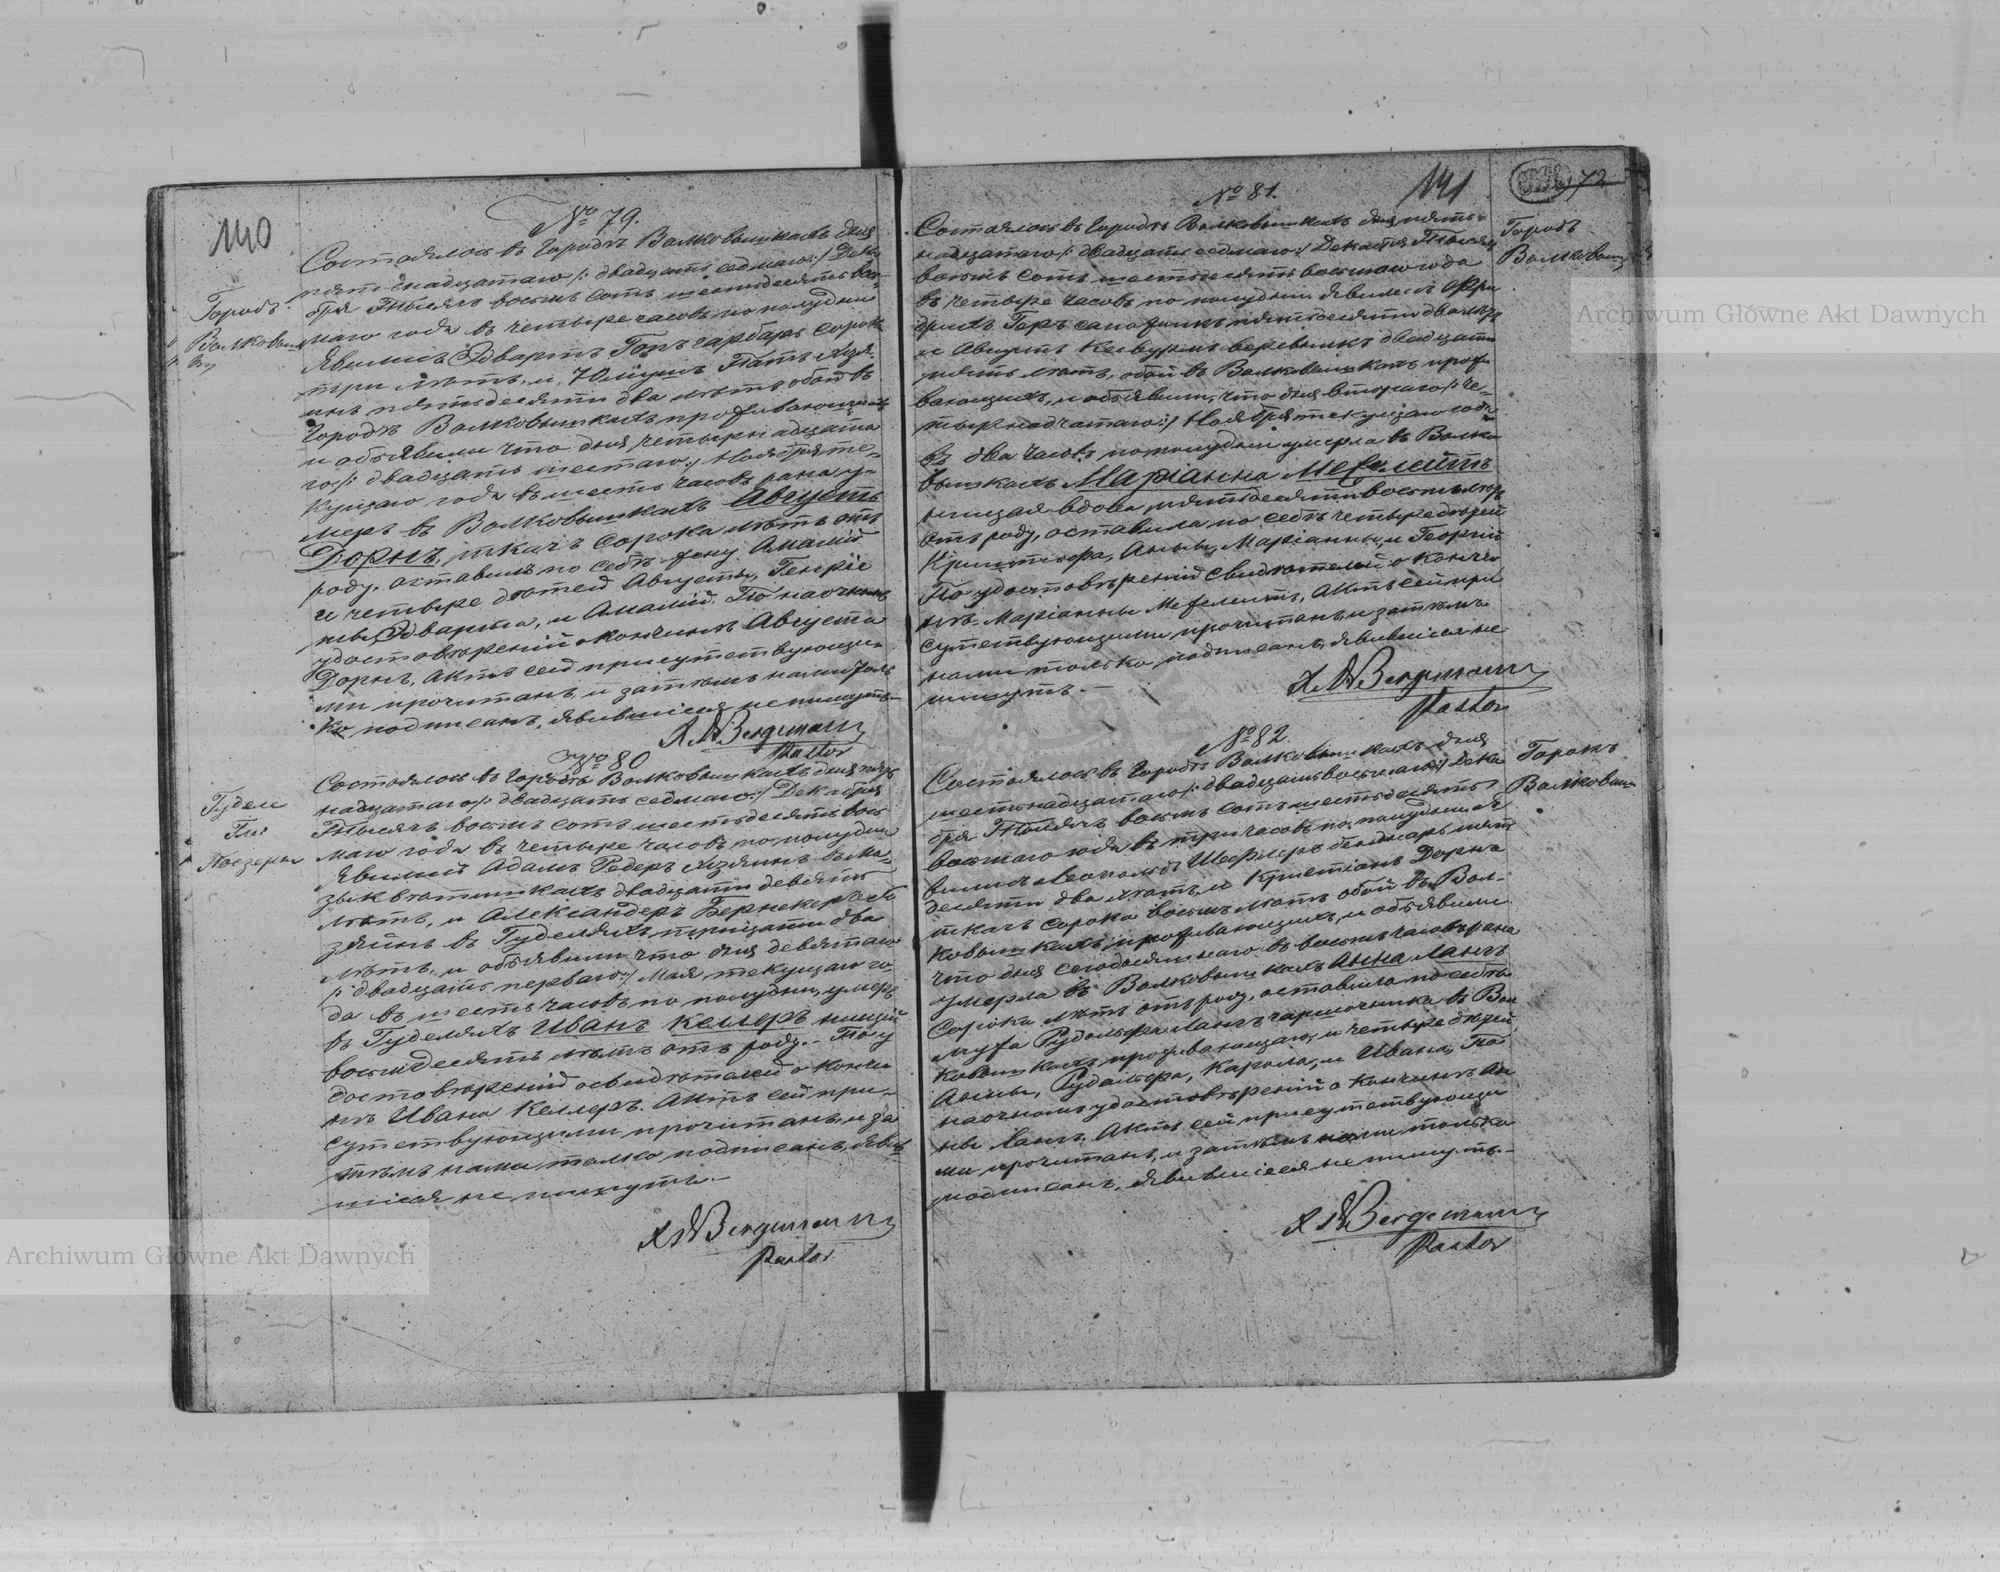 140
№ 79.
Городъ
Состоялось въ Городѣ Волковышкахъ дня
пятнадцатаго /: двадцать седмаго :/ Дека
бря Тысяча восемь сотъ шестьдесятъ вось
маго года въ четыре часовъ по полудни
Явились Эдвартъ Гопъ гарбарь сорок
три лѣтъ, и
пятьдесяти два лѣтъ обой въ
Городѣ Волковышкахъ проживающихъ
и объявили что дня четырнадцата
го /: двадцать шестаго :/ Ноября те-
кущаго года въ шесть часовъ рана у-
меръ въ Волковышкахъ Августъ
Дорнъ, ткачъ сорока лѣтъ отъ
роду, оставилъ по себѣ жену Амалій
и четыре дѣтей Августы, Генріе
ты, Эдварта, и Амалій. По наочномъ
удостовѣреній о кончинѣ Августа
Дорнъ, Актъ сей присутствующи-
ми прочитанъ, и затѣмъ нами толь
ко подписанъ, явившіеся не пишутъ.
A. W Bergemann
Pastor
№ 80
Гуделе
Поезеры
Состоялось въ Городѣ Волковышкахъ дня пят
надцатаго /: двадцать седмаго :/ Декабря
Тысяча восемь сотъ шестьдесятъ вось
маго года въ четыре часовъ по полудни
Явились Адамъ Редеръ Хозяинъ въ Ма-
двадцати девять
лѣтъ, и Александеръ Бернекеръ Хо
зяинъ въ Гуделяхъ тридцати два
лѣтъ, и объявили что дня девятаго
/: двадцать перваго :/ Мая текущаго го-
да въ шесть часовъ по полудни, умеръ
въ Гуделяхъ Иванъ Келлеръ нищій
восьмдесятъ лѣтъ отъ роду. По у
достовѣреній освидѣтелей о кончи
нѣ Ивана Келлеръ. Актъ сей при-
сутствующими прочитанъ, и за
тѣмъ нами только подписанъ, явив
шіеся не пишутъ.
A. W Bergemann
Pastor
141
72
№ 81.
Городъ
Состоялось въ Городѣ Волковышкахъ дня пять-
надцатаго /: двадцать седмаго :/ Декабря Тысяча
восемь сотъ шестьдесятъ восьмаго года
въ четыре часовъ по полудни явились Фри
дрихъ Геръ сапожникъ пятьдесяти два лѣтъ
и Августъ двадцати
пять лѣтъ, обой въ Волковышкахъ прожи
вающихъ, и объявили, что дня втораго /: че-
тырнадцатаго :/ Ноября текущаго года
въ два часовъ по полудни умерла въ Волко
вышкахъ Маріанна Межелисъ
нищая вдова, пятьдесяти восемь лѣтъ
отъ роду, оставила по себѣ четыре дѣтей
Криштофа, Анны, Маріанны, и Георгій
По удостовѣреній свидѣтелей о кончи
нѣ Маріанны Межелисъ, Актъ сей при
сутствующими прочитанъ, и затѣмъ
нами только подписанъ, явившіеся не
пишутъ.
A. W Bergemann
Pastor
№ 82
Состоялось въ Городѣ Волковышкахъ дня
шестьнадцатаго /: двадцать восьмаго :/ Дека
бря Тысяча восемь сотъ шестьдесятъ
восьмаго года въ три часовъ по полудни я
вились Леопольдъ Шефлеръ пять
десяти два лѣтъ, и Кристіанъ Дорнъ
ткачъ сорока восемь лѣтъ обой въ Вол-
ковышкахъ проживающихъ, и объявили
что дня сегодняшнаго въ восемь часовъ рана
умерла въ Волковышкахъ Анна Лангъ
Сорока лѣтъ отъ роду, оставила по себѣ
мужа Рудольфа Лангъ въ Вол
ковышкахъ проживающаго, и четыре дѣтей
Анны, Рудольфа, Кароля, и Ивана, По
наочномъ удостовѣреній о кончинѣ Ан
ны Лангъ. Актъ сей присутствующи
ми прочитанъ, и затѣмъ нами только
подписанъ, явившіеся не пишутъ.
A. W Bergemann
Pastor
Archiwum Główne Akt Dawnych
Archiwum Główne Akt Dawnych